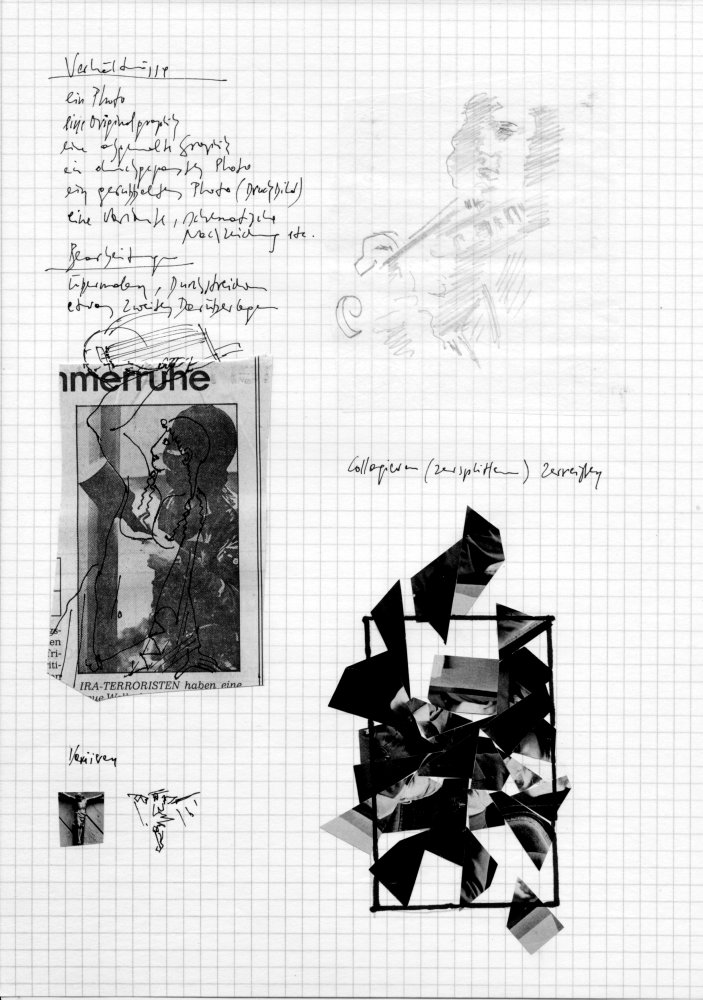 Verhältnisse
ein Photo
eine Originalgraphik
eine abgemalte Graphik
ein durchgepaustes Photo
ein gerubbeltes Photo (Druckbild)
eine Variante, schematische
Nachzeichnung etc.
Bearbeitungen
Übermalen, Durchstreichen
etwas Zweites Darüberlegen
mmerruhe
IRA-TERRORISTEN haben eine
Collagieren (zersplittern) Zerreißen
Variieren